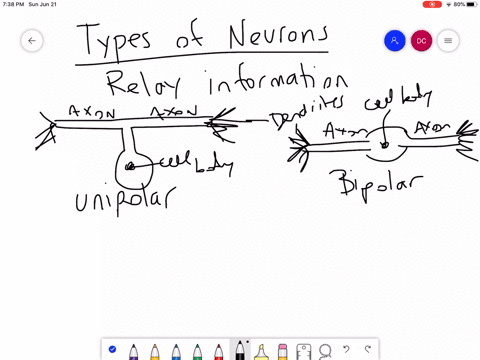 7:38 PM Sun Jun 21
80%
DC
Types of Neurons
Relay information
AXON AXON
Dendrites
cell body
Axon Axon
cell body
unipolar
Bipolar